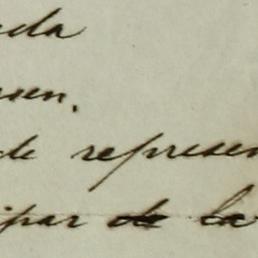 eda
sen.
de represen
ipar de la